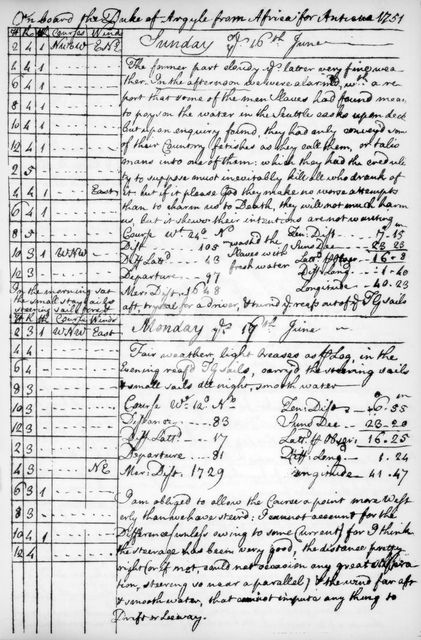 On board the Duke of Argyle from Africa for Antigua 1751
H K h Courses Winds Sunday ye 16th June
2 4 1 NWbW EbN
4 4 1 The former part cloudy, ye later very fine wea-
ther. In the afternoon we were alarm'd wth a re-
6 4 1 port that some of the men slaves had found mea.
8 4 1 to poyson the water in the scuttle casks upon deck
10 4 1 but upon enquiry found, they had only convey'd some
12 4 1 of their Country fetishes as they call them, or talis-
mans into one of them: which they had the creduli-
2 5 ty to suppose must inevitably kill all who drank of
4 4 1 East it. but if it please God they make no worse attempts
6 4 1 than to charm us to Death, they will not much harm
us, but it shews their intentions are not wanting.
8 5 Course Wt 24° No Zen: Dist 7.15
10 3 1 WNW Dist 105 washed the Suns Dec 23.23
Diff Latt: 43 Slaves with Latt: 16.8
12 3 Departure 97 fresh water Diff Long: 1.40
In the morning set Mer: Dist: 1648 Longitude 40.23
the small stay sails
steering sails
aft, for a driver, & turn'd ye reefs out of ye T G sails
H K h Course Winds Monday ye 17th June
2 3 1 WNW East
4 4 Fair weather, light breases as pr Log, in the
6 4 Evening reef'd T G sails, carry'd the steering sails
8 3 & small sails all night, smooth water
10 3 Course Wt 12° No Zen: Dist: 6.55
12 3 Distance 83 Suns Dec 23.20
2 3 Diff Latt: 17 Latt: pr Obser: 16.25
Departure 81 Diff: Long: 1.24
4 3 NE Mer: Dist 1729 Longitude 41.47
6 3 1 I am obliged to allow the Course a point more West
8 3 erly than we have steer'd: I cannot account for the
10 4 1 Difference (unless owing to some Current) for I think
12 4 the steerage has been very good, the distance pretty
right (or if not, could not occasion any great
tion, steering so near a parallel) & the wind far aft
& smooth water, that cannot impute any thing to
Drift or Leeway.